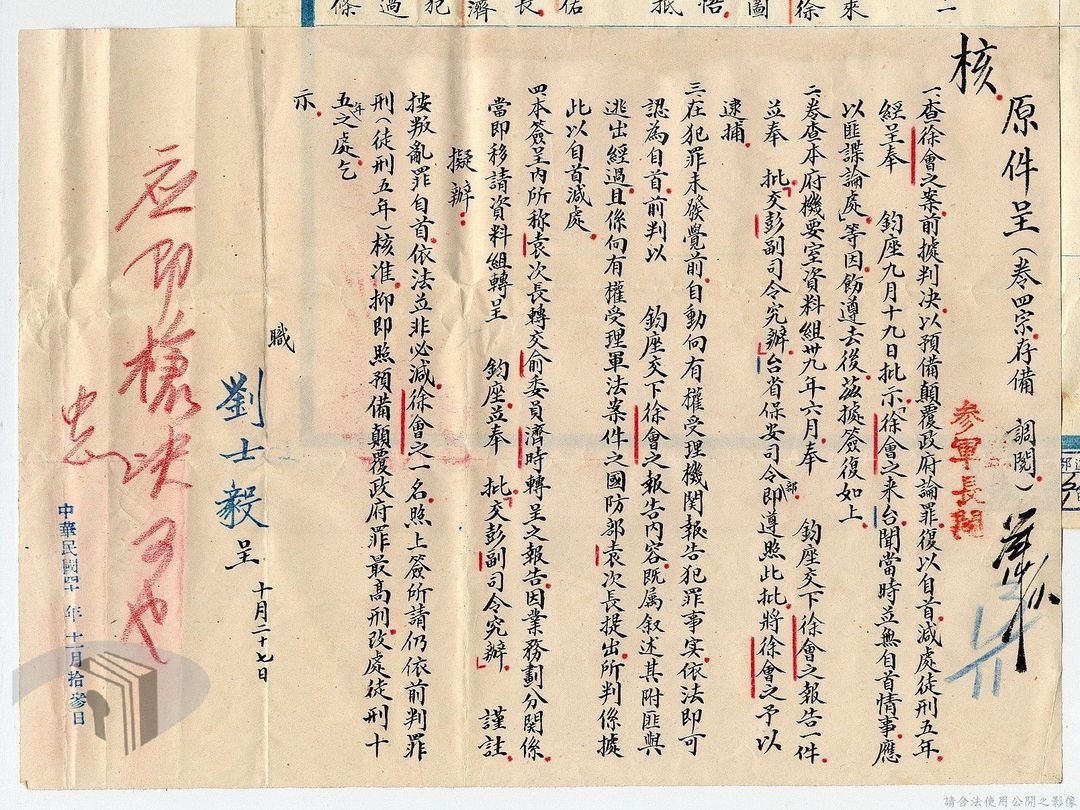 核
原件呈（卷四宗存備　調閱）
參軍長閱
一、查徐會之案前據判決以預備顛覆政府論罪復以自首減處徒刑五年
經呈奉　鈞座九月十九日批示「徐會之來台聞當時並無自首情事應
以匪諜論處」等因飭遵去後茲據簽復如上
二、卷查本府機要室資料組卅九年六月奉　鈞座交下徐會之報告一件
並奉　批「交彭副司令究辦」台省保安司令部即遵照此批將徐會之予以
逮捕
三、在犯罪未發覺前自動向有權受理機関報告犯罪事实依法即可
認為自首前判以　鈞座交下徐會之報告内容既属叙述其附匪與
逃出經過且係向有權受理軍法案件之國防部袁次長提出所判係據
此以自首減處
四、本簽呈内所称袁次長轉交俞委員濟時轉呈之報告因業務劃分関係
當即移請資料組轉呈　鈞座並奉　批「交彭副司令究辦」　謹註
擬辦：
按叛亂罪自首依法並非必減徐會之一名照上簽所請仍依前判罪
刑（徒刑五年）核准抑即照預備顛覆政府罪最高刑改處徒刑十
五年之處乞
示
職
劉士毅呈　十月二十七日
应即槍决可也
中華民國四十年十一月拾參日
來
徐
圖
悟
抵
佑
濟
長
犯
過
條
請合法使用公開之影像